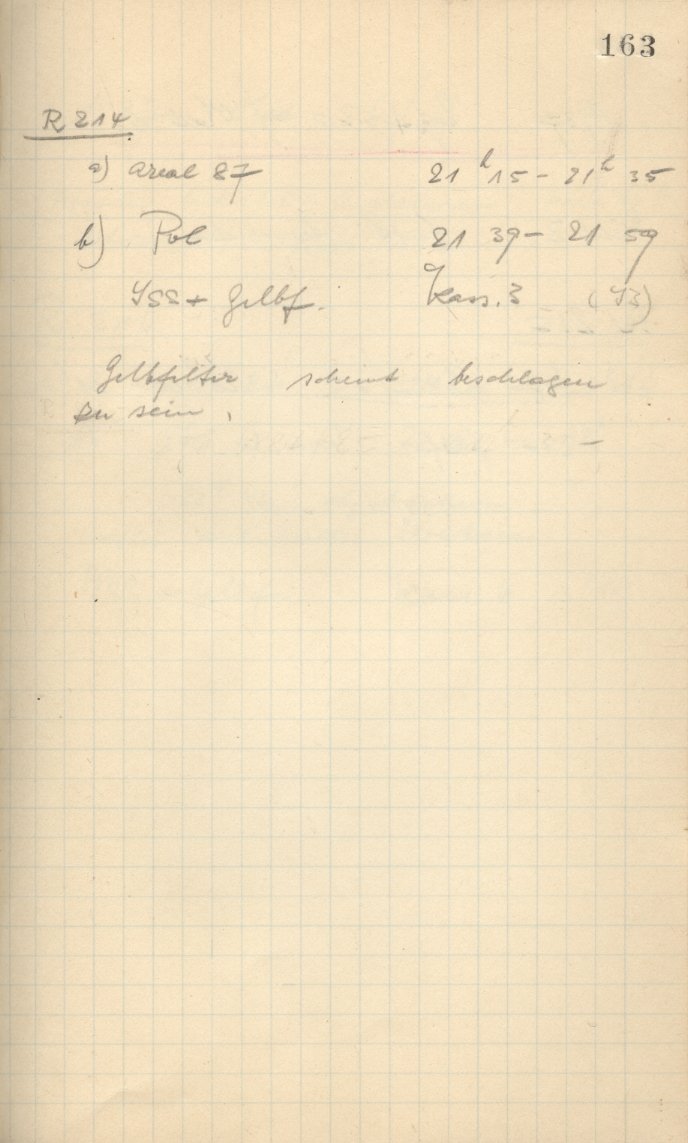 163
R 214
a) Areal 87 21 h 15 - 21 h 35
b) Pol 21 39 - 21 59
ISS + Gelbf. Kass. 3 (I3)
Gelbfilter scheint beschlagen
zu sein.